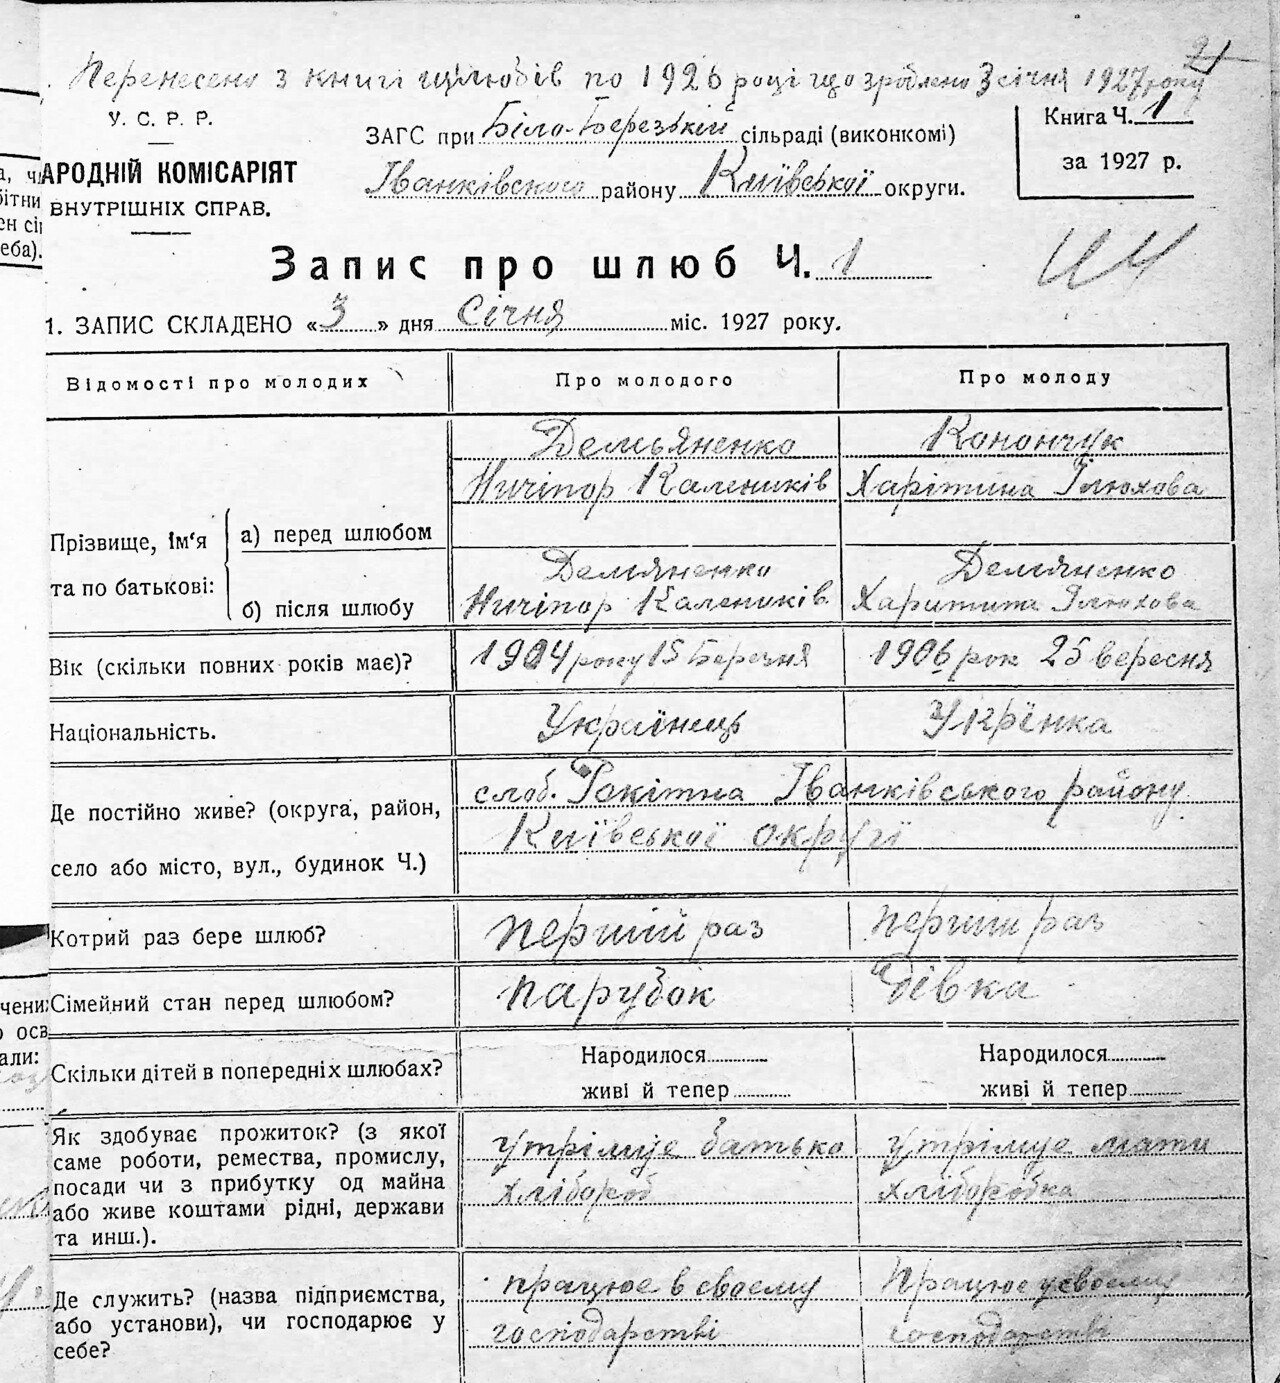 21
Перенесено з книги шлюбів по 1926 році що зроблено 3 січня 1927 року
У. С. Р. Р.
АРОДНІЙ КОМІСАРІЯТ
ВНУТРІШНІХ СПРАВ.
ЗАГС при Біло-Березькій сільраді (виконкомі)
Іванківского району Київської округи.
Книга Ч. 1
за 1927 р.
Запис про шлюб Ч. 1
1. ЗАПИС СКЛАДЕНО «3» дня Січня міс. 1927 року.
Відомості про молодих
Про молодого
Про молоду
Прізвище, ім'я та по батькові:
а) перед шлюбом
Демьяненко
Ничіпор Калеників
Конончук
Харітина Ілюхова
б) після шлюбу
Демяненко
Ничіпор Калеників
Демяненко
Харитина Ілюхова
Вік (скільки повних років має)?
1904 року 15 Березня
1906 рок 25 вересня
Національність.
Українець
Укрїнка
Де постійно живе? (округа, район,
село або місто, вул., будинок Ч.)
слоб. Рокітна Іванківського району
Київської округї
Котрий раз бере шлюб?
перший раз
перший раз
Сімейний стан перед шлюбом?
парубок
дівка
Скільки дітей в попередніх шлюбах?
Народилося
живі й тепер
Народилося
живі й тепер
Як здобуває прожиток? (з якої
саме роботи, ремества, промислу,
посади чи з прибутку од майна
або живе коштами рідні, держави
та инш.).
утрімує батько
хлібороб
утрімує мати
хліборобка
Де служить? (назва підприємства,
або установи), чи господарює у
себе?
працює в своєму
господарстві
Працює у своєму
господарстві